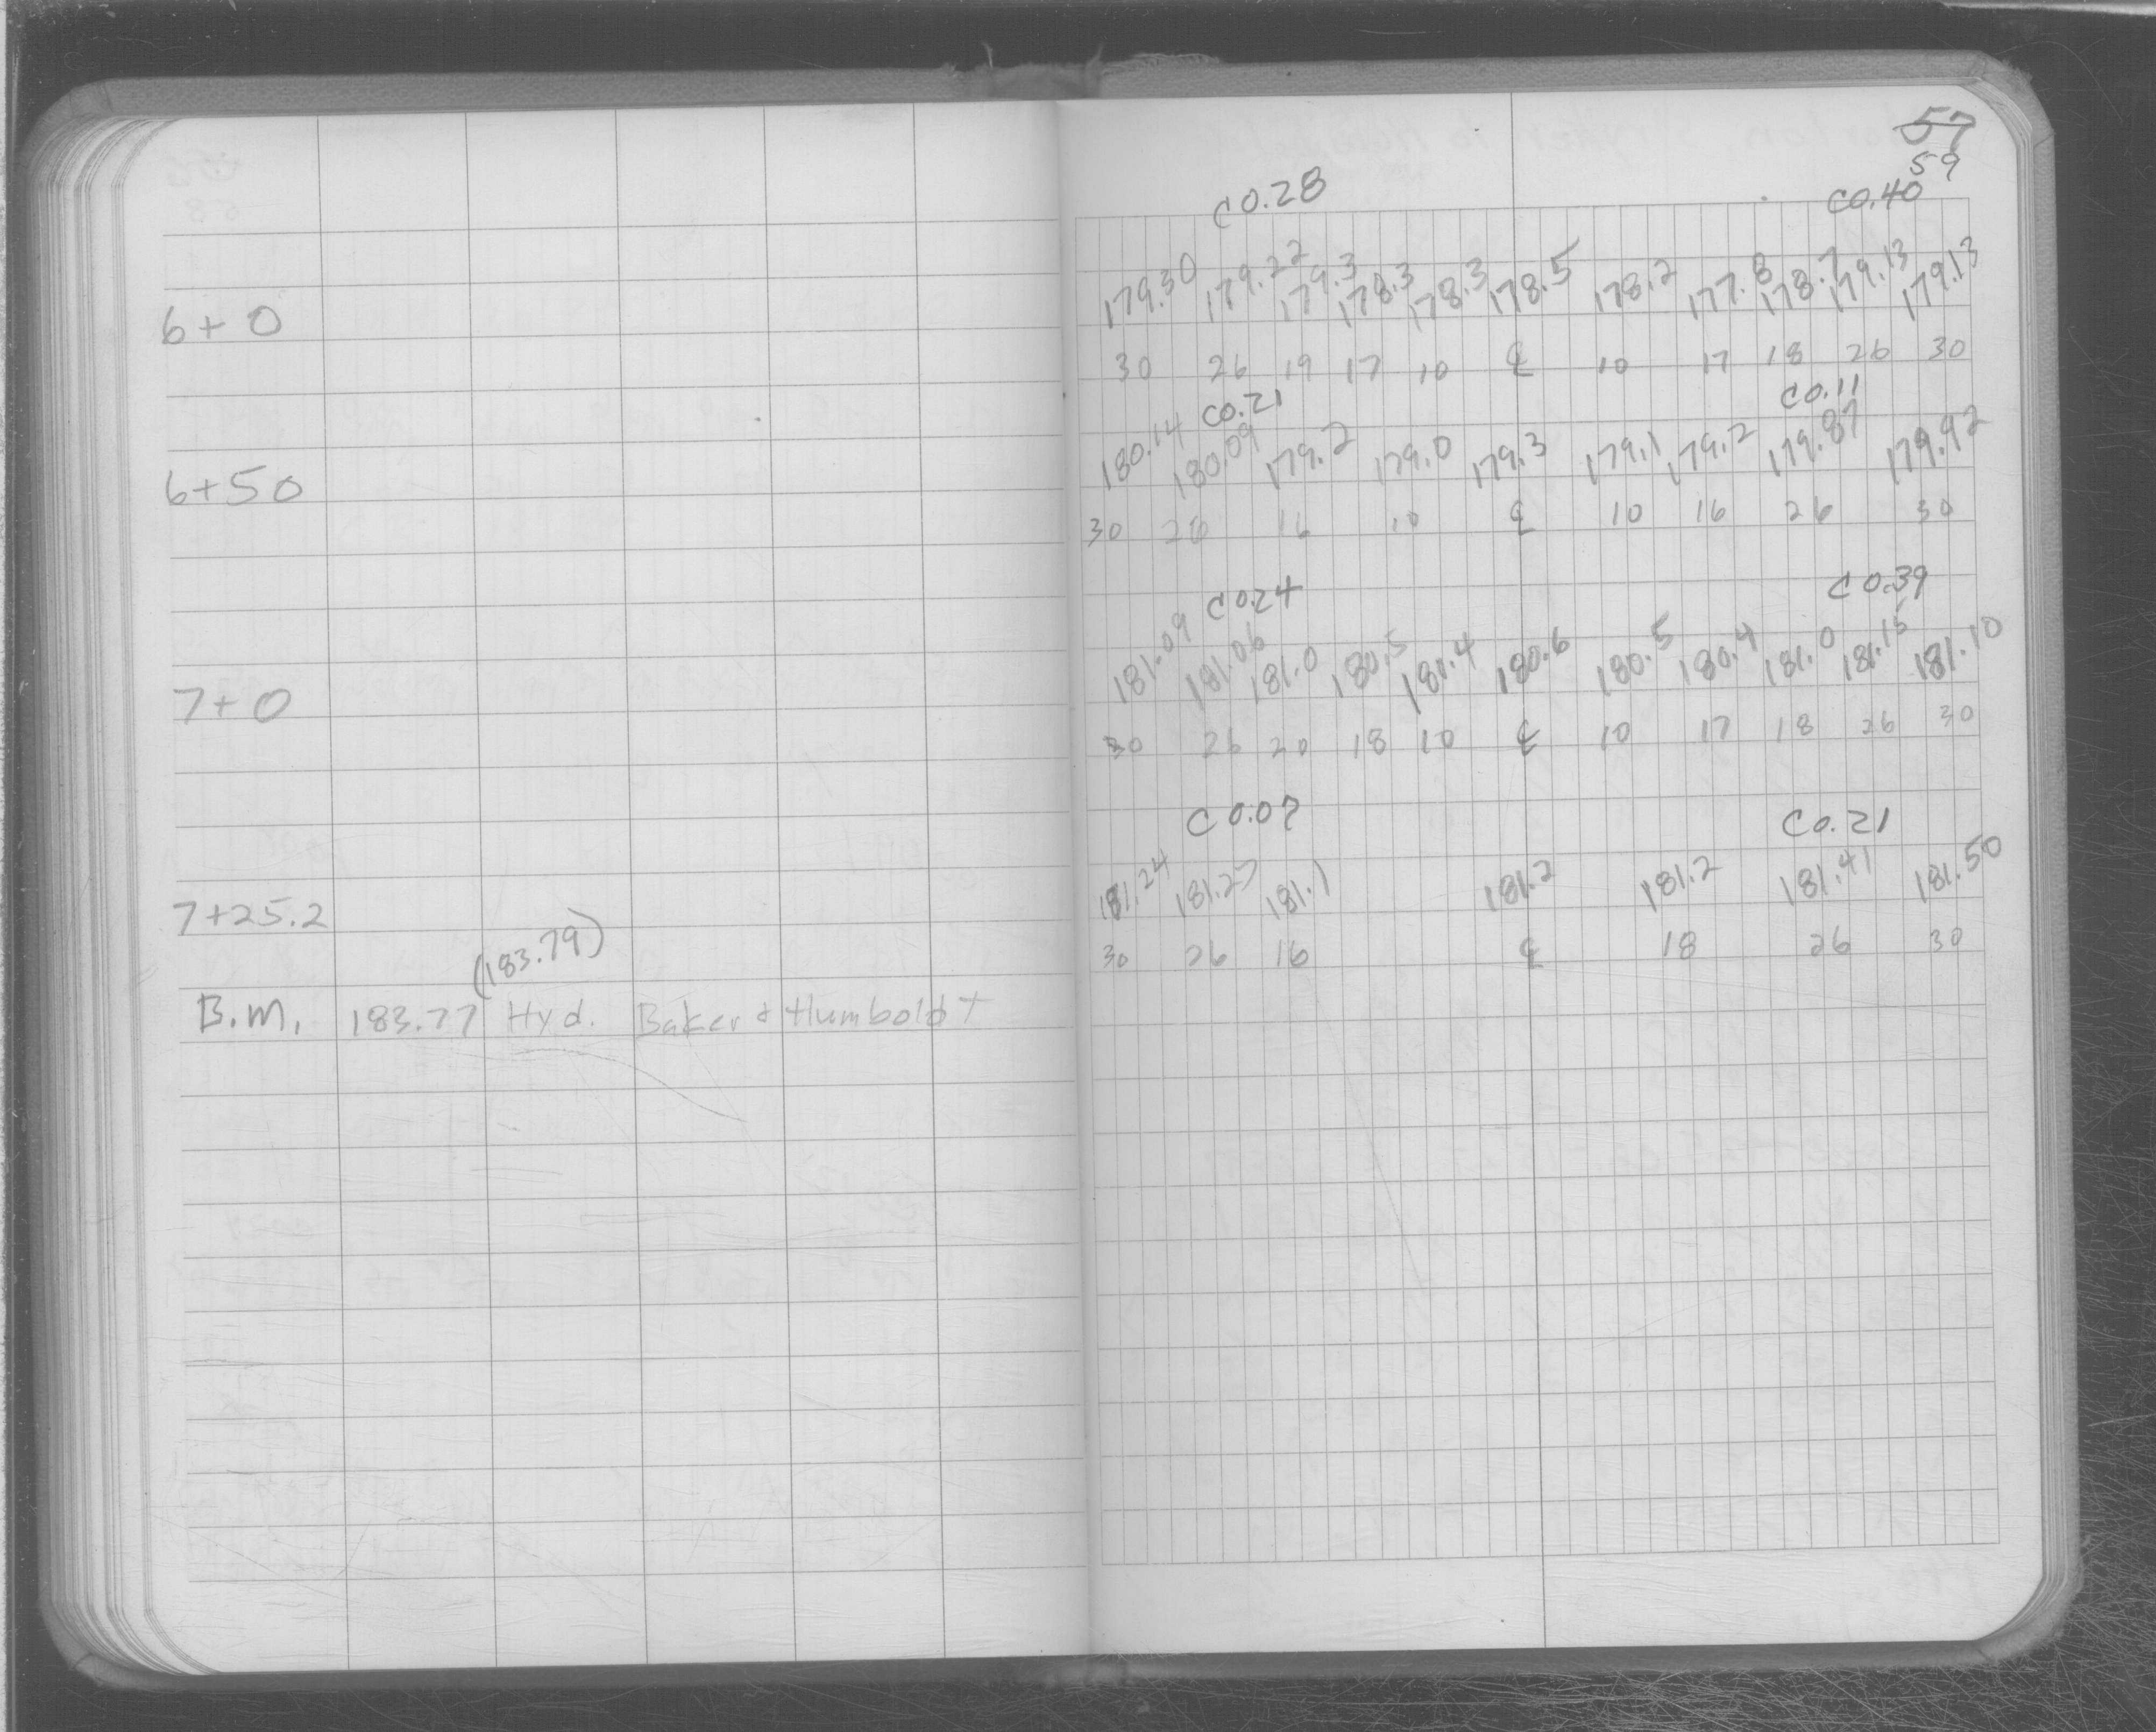 57
59
C0.28 C0.40
6+0 179.30 179.22 179.3 178.3 178.3 178.5 178.2 177.8 178.7 179.13 179.13
30 26 19 17 10 ℄ 10 17 18 26 30
C0.21 C0.11
6+50 180.14 180.09 179.2 179.0 179.3 179.1 179.2 179.87 179.92
30 26 16 10 ℄ 10 16 26 30
C0.24 C0.39
7+0 181.09 181.06 181.0 180.5 180.4 180.6 180.5 180.4 181.0 181.15 181.10
30 26 20 18 10 ℄ 10 17 18 26 30
C0.07 C0.21
7+25.2 181.24 181.27 181.1 181.2 181.2 181.41 181.50
30 26 16 ℄ 18 26 30
(183.79)
B.M. 183.77 Hyd. Baker & Humboldt